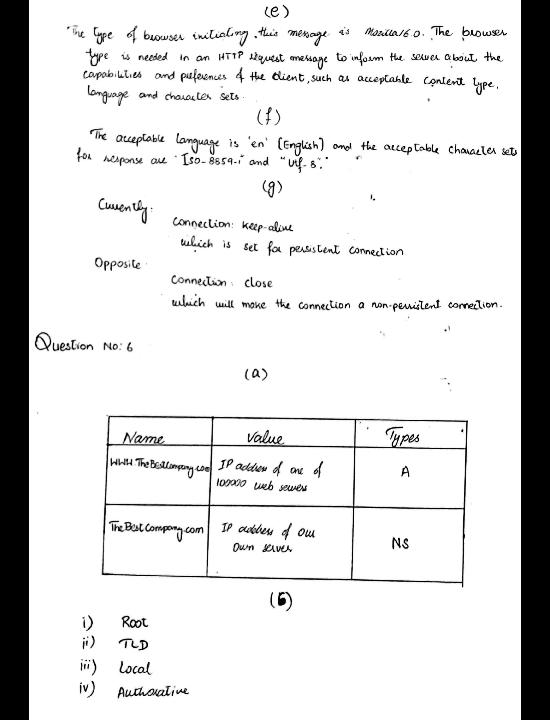 (e)
The type of browser initiating this message is Mozilla/6.0. The browser
type is needed in an HTTP request message to inform the server about the
capabilities and preferences of the client, such as acceptable content type,
language and character sets.
(f)
The acceptable language is 'en' (English) and the acceptable character sets
for response are "Iso-8859-1" and "Utf-8".
(g)
Currently:
Connection: keep-alive
which is set for persistent connection
Opposite
Connection: close
which will make the connection a non-persistent connection.
Question No: 6
(a)
Name Value Types
WWW.TheBestCompany.com IP address of one of A
100000 web servers
TheBestCompany.com IP address of our NS
own server
(b)
i) Root
ii) TLD
iii) Local
iv) Authorative